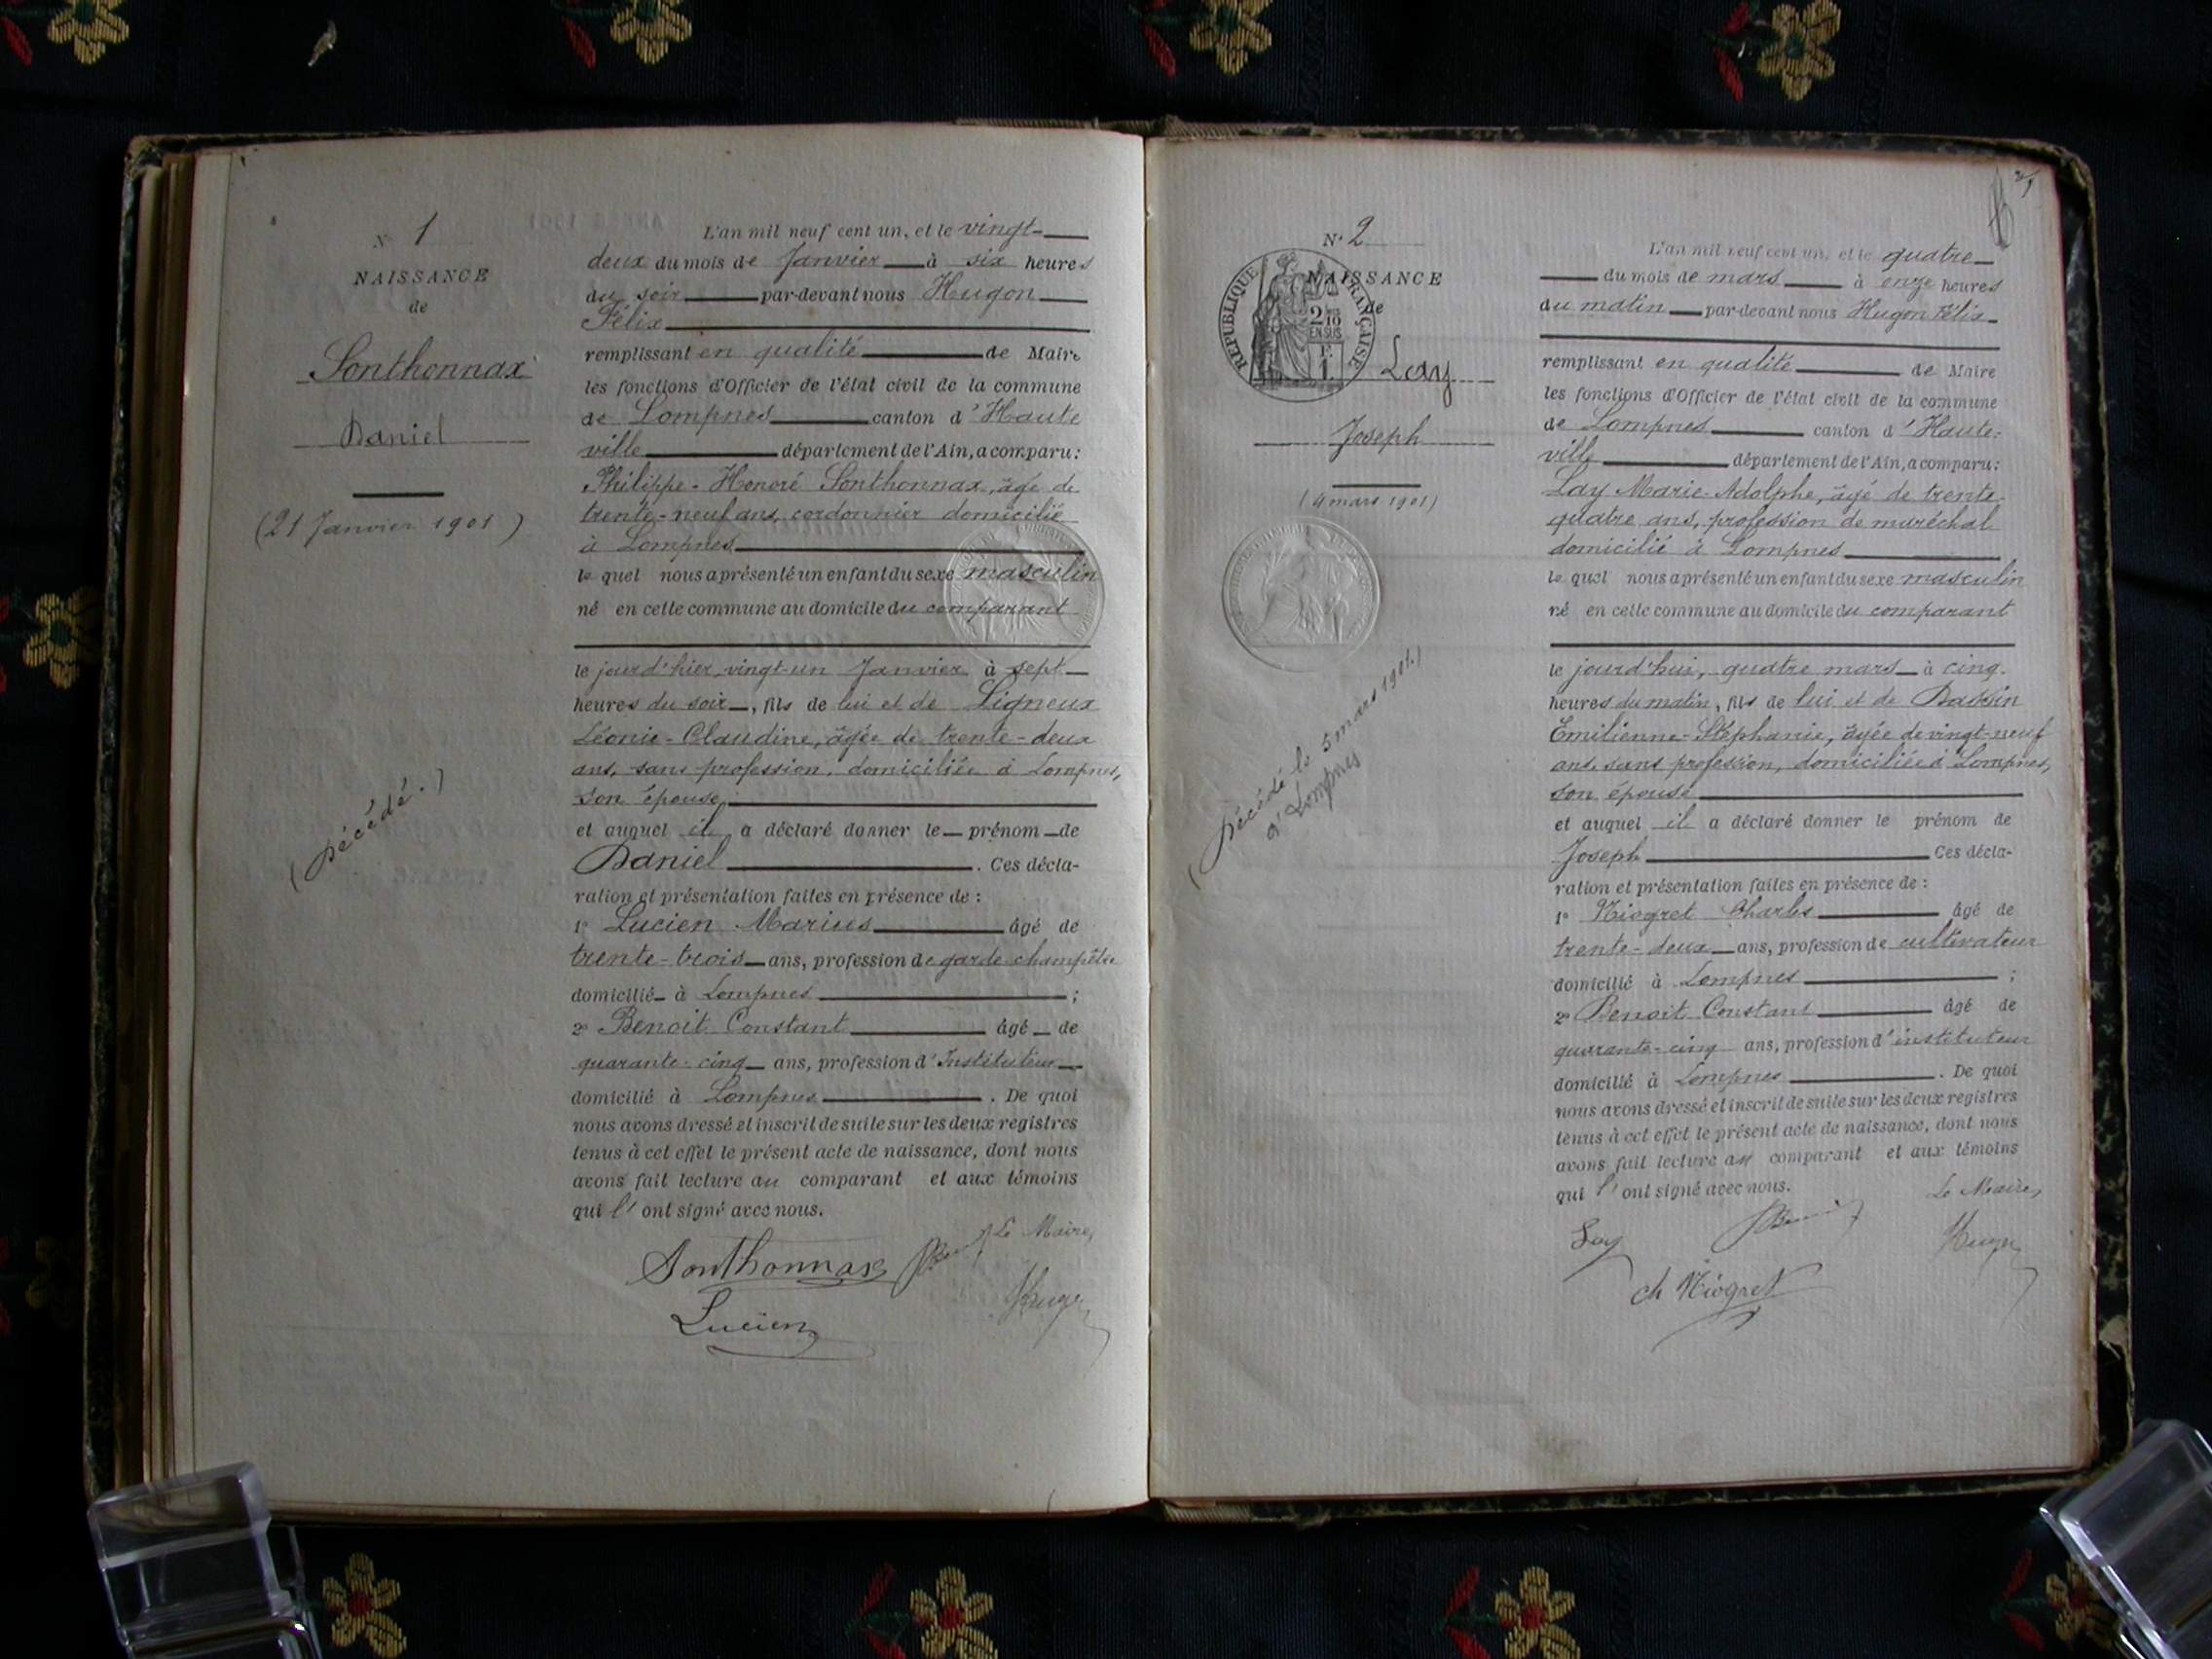 N° 1
NAISSANCE
de
Sonthonnax
Daniel
(21 Janvier 1901)
(Décédé.)
L'an mil neuf cent un, et le vingt-
deux du mois de Janvier à six heures
du soir par-devant nous Hugon
Félix
remplissant en qualité de Maire
les fonctions d'Officier de l'état civil de la commune
de Lompnes canton d'Haute
ville département de l'Ain, a comparu:
Philippe-Honoré Sonthonnax, âgé de
trente-neuf ans, cordonnier domicilié
à Lompnes
le quel nous a présenté un enfant du sexe masculin
né en cette commune au domicile du comparant
le jourd'hier, vingt-un Janvier à sept
heures du soir, fils de lui et de Ligneux
Léonie-Claudine, âgée de trente-deux
ans, sans profession, domiciliée à Lompnes,
son épouse,
et auquel il a déclaré donner le prénom de
Daniel. Ces décla-
ration et présentation faites en présence de :
1° Lucien Marius âgé de
trente-trois ans, profession de garde-champêtre
domicilié à Lompnes ;
2° Benoit Constant âgé de
quarante-cinq ans, profession d'Instituteur
domicilié à Lompnes. De quoi
nous avons dressé et inscrit de suite sur les deux registres
tenus à cet effet le présent acte de naissance, dont nous
avons fait lecture au comparant et aux témoins
qui l'ont signé avec nous.
Le Maire,
Sonthonnax
Hugon
Lucien
N° 2
NAISSANCE
de
REPUBLIQUE FRANÇAISE
2/10
EN SUS
F.
1
Lay
Joseph
(4 mars 1901)
(Décédé le 5 mars 1901.)
à Lompnes
L'an mil neuf cent un, et le quatre
du mois de mars à onze heures
du matin par-devant nous Hugon Félix
remplissant en qualité de Maire
les fonctions d'Officier de l'état civil de la commune
de Lompnes canton d'Haute-
ville département de l'Ain, a comparu:
Lay Marie-Adolphe, âgé de trente-
quatre ans, profession de maréchal
domicilié à Lompnes
le quel nous a présenté un enfant du sexe masculin
né en cette commune au domicile du comparant
le jourd'hui, quatre mars à cinq
heures du matin, fils de lui et de
Emilienne-Stéphanie, âgée de vingt-neuf
ans, sans profession, domiciliée à Lompnes,
son épouse
et auquel il a déclaré donner le prénom de
Joseph Ces décla-
ration et présentation faites en présence de :
1° Niogret Charles âgé de
trente-deux ans, profession de cultivateur
domicilié à Lompnes ;
2° Benoit Constant âgé de
quarante-cinq ans, profession d'instituteur
domicilié à Lompnes. De quoi
nous avons dressé et inscrit de suite sur les deux registres
tenus à cet effet le présent acte de naissance, dont nous
avons fait lecture au comparant et aux témoins
qui l'ont signé avec nous.
Le Maire,
Lay
Hugon
ch Niogret